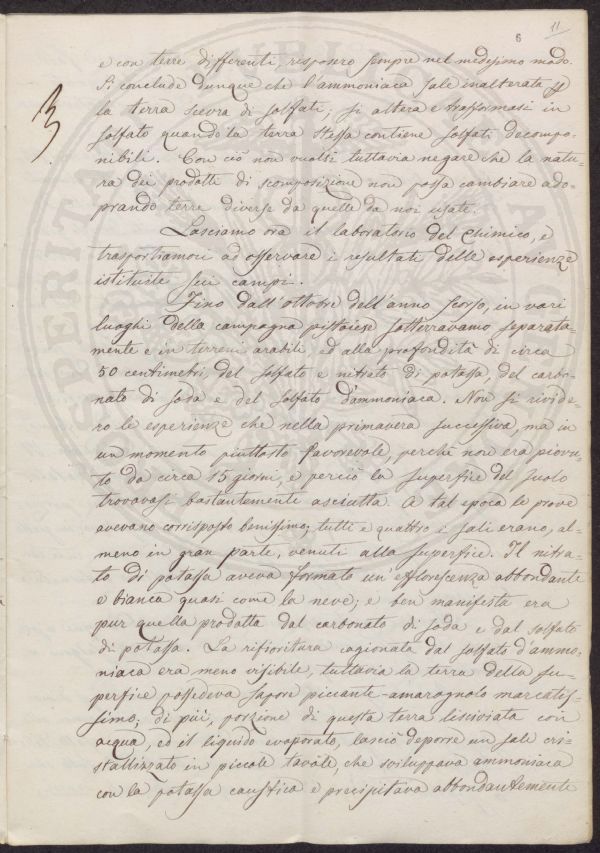 11
6
e con terre differenti, risposero sempre nel medesimo modo.
Si conclude dunque che l'ammoniaca sale inalterata se
la terra scevra di solfati; si altera e trasformasi in
solfato quando la terra stessa contiene solfati decompo-
nibili. Con ciò non vuolsi tuttavia negare che la natu-
ra dei prodotti di scomposizione non possa cambiare ado-
prando terre diverse da quelle da noi usate.
Lasciamo ora il laboratorio del Chimico, e
trasportiamoci ad osservare i resultati delle esperienze
istituite sui campi.
Fino dall'ottobre dell'anno scorso, in vari
luoghi della campagna pistoiese sotterravamo separata-
mente e in terreni arabili ed alla profondità di circa
50 centimetri del solfato e nitrato di potassa, del carbo-
nato di soda e del solfato d'ammoniaca. Non si rivide-
ro le esperienze che nella primavera successiva, ma in
un momento piuttosto favorevole, perchè non era piovu-
to da circa 15 giorni, e perciò la superficie del suolo
trovavasi bastantemente asciutta. A tal epoca le prove
avevano corrisposto benissimo; tutti e quattro i sali erano, al-
meno in gran parte, venuti alla superfice. Il nitra-
to di potassa aveva formato un'efflorescenza abbondante
e bianca quasi come la neve; e ben manifesta era
pur quella prodotta dal carbonato di soda e dal solfato
di potassa. La rifioritura cagionata dal solfato d'ammo-
niaca era meno visibile, tuttavia la terra della su-
perfice possedeva sapore piccante-amarognolo marcatis-
simo; di più, porzione di questa terra lisciviata con
acqua, ed il liquido evaporato, lasciò deporre un sale cri-
stallizzato in piccole tavole, che sviluppava ammoniaca
con la potassa caustica e precipitava abbondantemente